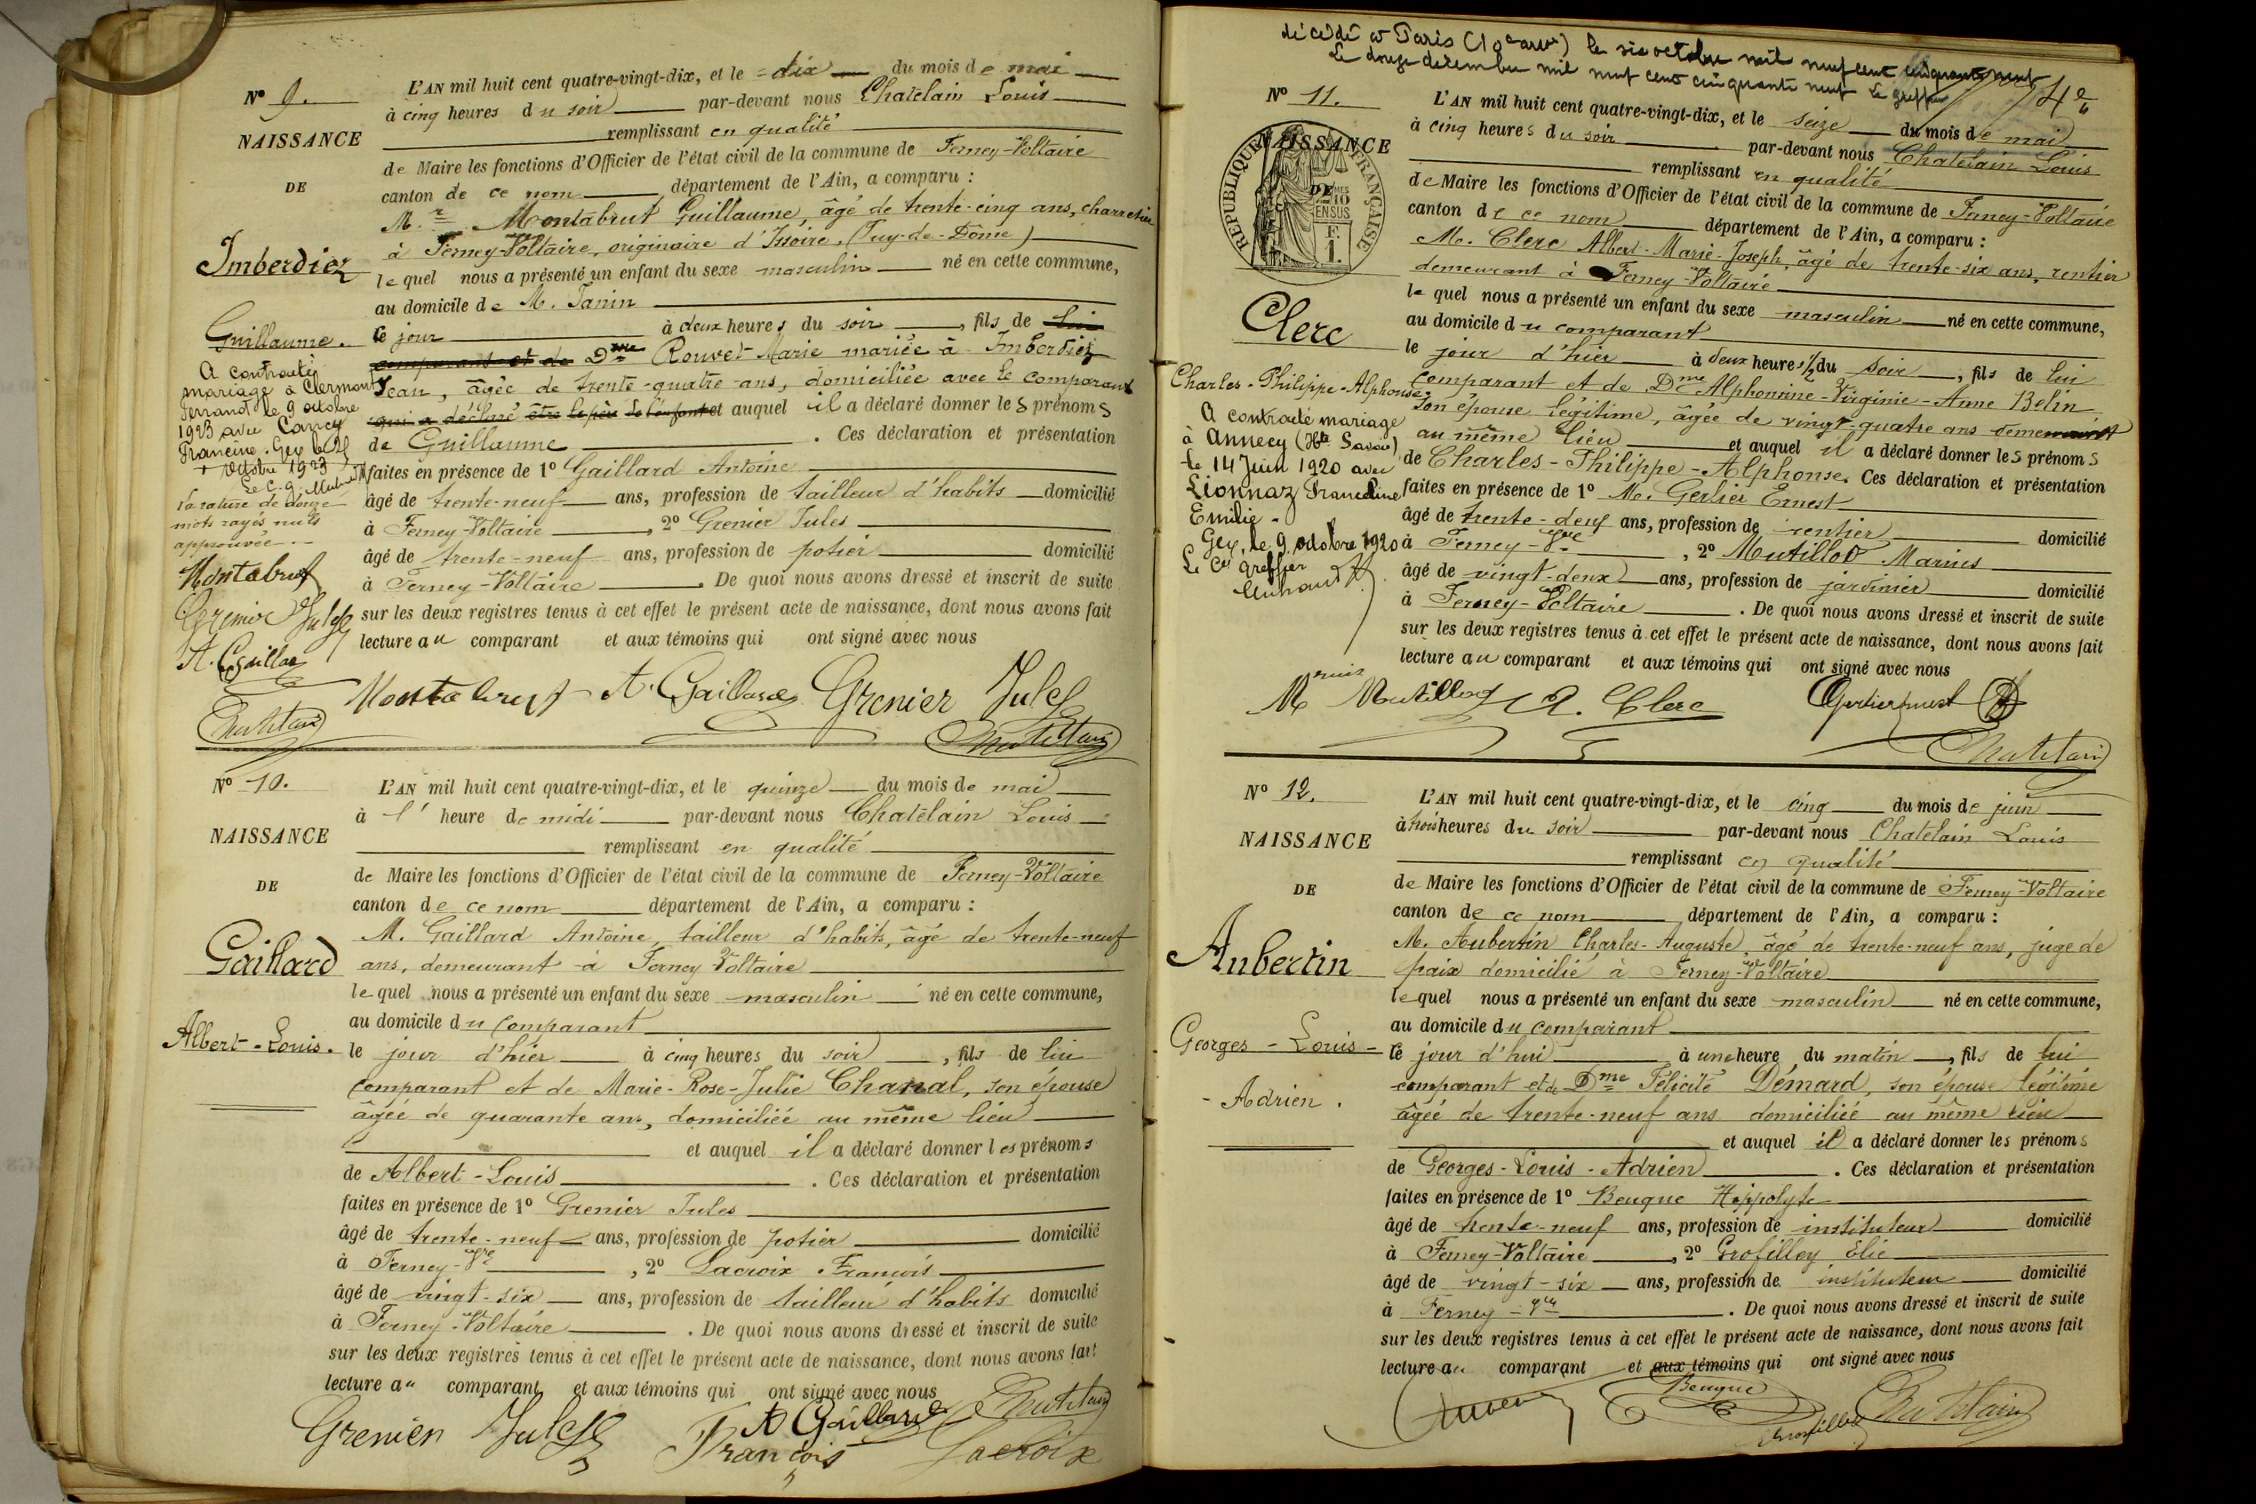 Nº 9.
NAISSANCE
DE
Imberdiez
Guillaume.
A contracté
mariage à Clermont
Ferrand le 9 octobre
1923 avec Cancy
Francine. Gex le 21
octobre 1923
Le C. g.
La rature de douze
mots rayés nuls
approuvée.
Montabrut
Grenier Jules
A. Gaillard
Chatelain
L'AN mil huit cent quatre-vingt-dix, et le dix du mois de mai
à cinq heures du soir par-devant nous Chatelain Louis
remplissant en qualité
de Maire les fonctions d'Officier de l'état civil de la commune de Ferney-Voltaire
canton de ce nom département de l'Ain, a comparu :
M.r Montabrut Guillaume, âgé de trente-cinq ans, charretier
à Ferney-Voltaire, originaire d'Issoire, (Puy-de-Dôme)
lequel nous a présenté un enfant du sexe masculin né en cette commune,
au domicile de M. Panin
ce jour à deux heures du soir, fils de lui
comparant et de Dme Rouvet Marie mariée à Imberdiez
Jean, âgée de trente-quatre ans, domiciliée avec le comparant
qui a déclaré être le père de l'enfant et auquel il a déclaré donner les prénoms
de Guillaume. Ces déclaration et présentation
faites en présence de 1º Gaillard Antoine
âgé de trente-neuf ans, profession de tailleur d'habits domicilié
à Ferney-Voltaire, 2º Grenier Jules
âgé de trente-neuf ans, profession de potier domicilié
à Ferney-Voltaire. De quoi nous avons dressé et inscrit de suite
sur les deux registres tenus à cet effet le présent acte de naissance, dont nous avons fait
lecture au comparant et aux témoins qui ont signé avec nous
Montabrut A. Gaillard Grenier Jules
Chatelain
Nº 10.
NAISSANCE
DE
Gaillard
Albert-Louis.
L'AN mil huit cent quatre-vingt-dix, et le quinze du mois de mai
à l' heure de midi par-devant nous Chatelain Louis
remplissant en qualité
de Maire les fonctions d'Officier de l'état civil de la commune de Ferney-Voltaire
canton de ce nom département de l'Ain, a comparu :
M. Gaillard Antoine, tailleur d'habits, âgé de trente-neuf
ans, demeurant à Ferney Voltaire
lequel nous a présenté un enfant du sexe masculin né en cette commune,
au domicile du comparant
le jour d'hier à cinq heures du soir, fils de lui
comparant et de Marie-Rose-Julie Chanal, son épouse
âgée de quarante ans, domiciliée au même lieu
et auquel il a déclaré donner les prénoms
de Albert-Louis. Ces déclaration et présentation
faites en présence de 1º Grenier Jules
âgé de trente-neuf ans, profession de potier domicilié
à Ferney-Vre, 2º Lacroix François
âgé de vingt-six ans, profession de tailleur d'habits domicilié
à Ferney-Voltaire. De quoi nous avons dressé et inscrit de suite
sur les deux registres tenus à cet effet le présent acte de naissance, dont nous avons fait
lecture au comparant et aux témoins qui ont signé avec nous
Chatelain
Grenier Jules A Gaillard
François Lacroix
décédé à Paris (19e arrt) le six octobre mil neuf cent cinquante neuf
Le douze décembre mil neuf cent cinquante neuf Le greffier
Nº 11.
NAISSANCE
DE
RÉPUBLIQUE FRANÇAISE
2/10
EN SUS
F.
1.
Clerc
Charles-Philippe-Alphonse.
A contracté mariage
à Annecy (Hte Savoie)
le 14 Juin 1920 avec
Lionnaz Franceline
Emilie -
Gex, le 9 octobre 1920
Le Cis Greffier
L'AN mil huit cent quatre-vingt-dix, et le seize du mois de mai
à cinq heures du soir par-devant nous Chatelain Louis
remplissant en qualité
de Maire les fonctions d'Officier de l'état civil de la commune de Ferney-Voltaire
canton de ce nom département de l'Ain, a comparu :
M. Clerc Albert-Marie-Joseph, âgé de trente-six ans, rentier
demeurant à Ferney-Voltaire
lequel nous a présenté un enfant du sexe masculin né en cette commune,
au domicile du comparant
le jour d'hier à deux heures 1/2 du soir, fils de lui
comparant et de Dme Alphonsine-Virginie-Anne Belin
son épouse légitime, âgée de vingt-quatre ans demeurant
au même lieu et auquel il a déclaré donner les prénoms
de Charles-Philippe-Alphonse. Ces déclaration et présentation
faites en présence de 1º M. Gerlier Ernest
âgé de trente-deux ans, profession de rentier domicilié
à Ferney-Vre, 2º Mutillod Marius
âgé de vingt-deux ans, profession de jardinier domicilié
à Ferney-Voltaire. De quoi nous avons dressé et inscrit de suite
sur les deux registres tenus à cet effet le présent acte de naissance, dont nous avons fait
lecture au comparant et aux témoins qui ont signé avec nous
Mutillod A. Clerc Gerlier Ernest
Chatelain
Nº 12.
NAISSANCE
DE
Aubertin
Georges-Louis-
-Adrien.
L'AN mil huit cent quatre-vingt-dix, et le cinq du mois de juin
à trois heures du soir par-devant nous Chatelain Louis
remplissant en qualité
de Maire les fonctions d'Officier de l'état civil de la commune de Ferney-Voltaire
canton de ce nom département de l'Ain, a comparu :
M. Aubertin Charles-Auguste, âgé de trente-neuf ans, juge de
paix domicilié à Ferney-Voltaire
lequel nous a présenté un enfant du sexe masculin né en cette commune,
au domicile du comparant
ce jour d'hui à une heure du matin, fils de lui
comparant et de Dme Félicité Démard, son épouse légitime
âgée de trente-neuf ans domiciliée au même lieu
et auquel il a déclaré donner les prénoms
de Georges-Louis-Adrien. Ces déclaration et présentation
faites en présence de 1º Beuque Hippolyte
âgé de trente-neuf ans, profession de instituteur domicilié
à Ferney-Voltaire, 2º Grofilley Elie
âgé de vingt-six ans, profession de instituteur domicilié
à Ferney-Vre. De quoi nous avons dressé et inscrit de suite
sur les deux registres tenus à cet effet le présent acte de naissance, dont nous avons fait
lecture au comparant et aux témoins qui ont signé avec nous
Beuque
Chatelain